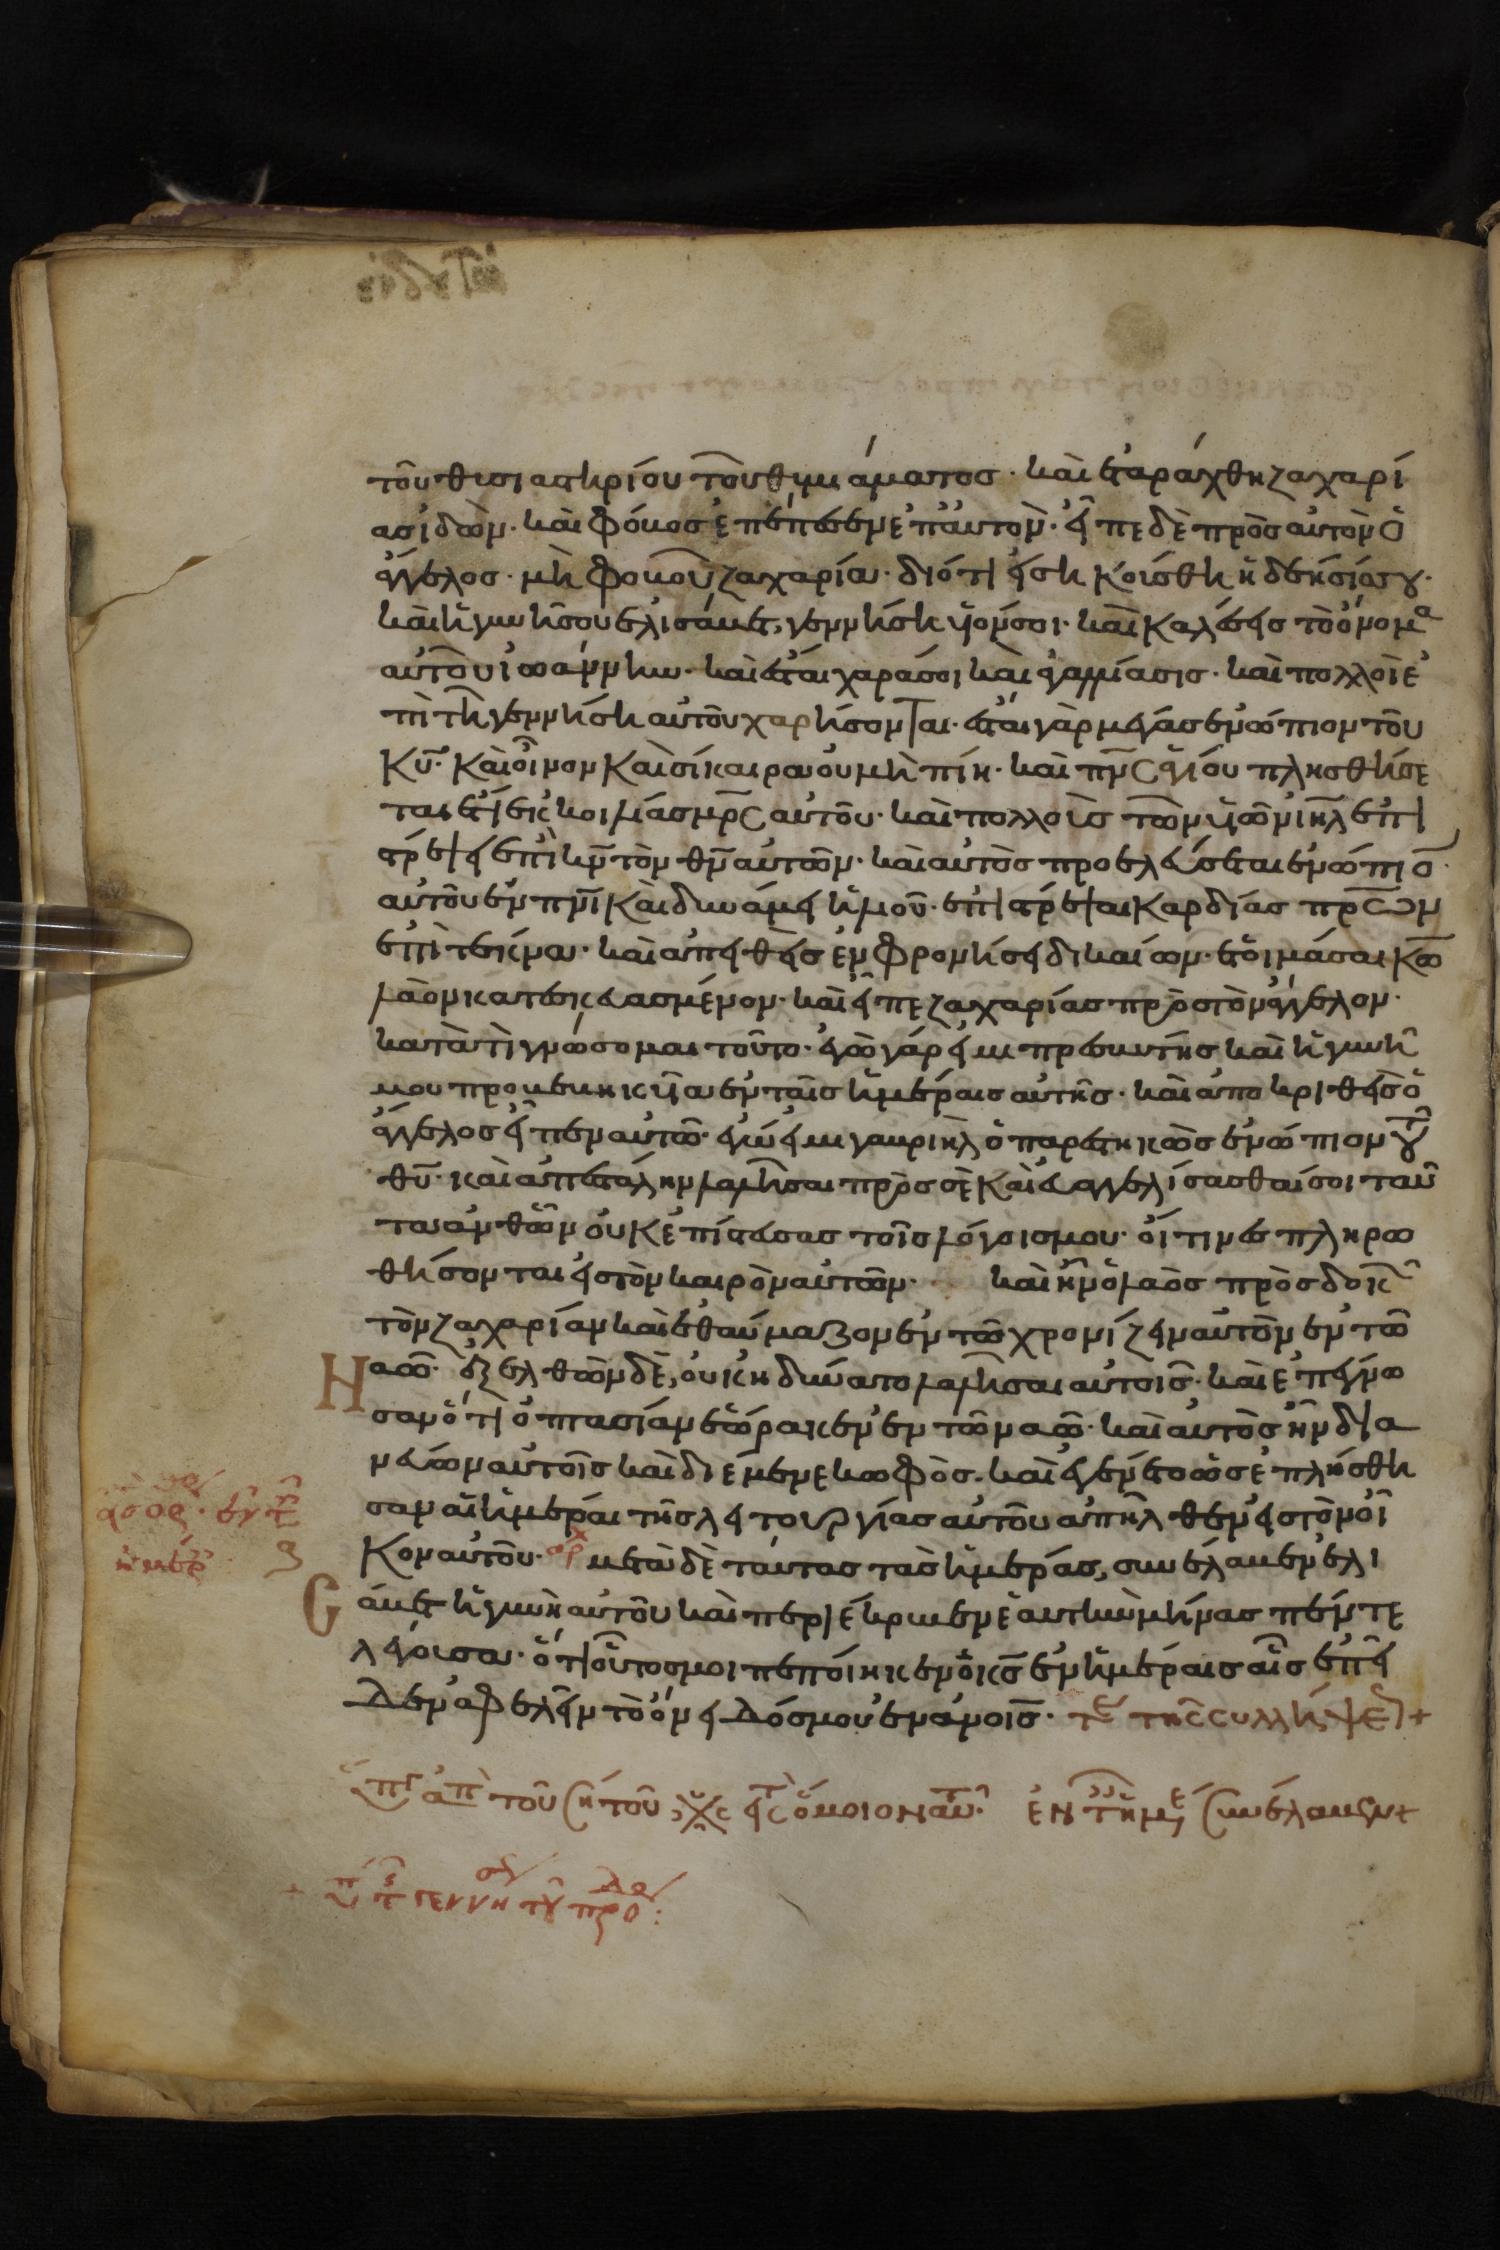 τοῦ θισιαστηρίου τοῦ θυμιάματος· καὶ ἐταράχθη ζαχαρί
ας ἰδὼν· καὶ φόβος ἐπέπεσεν ἐπ' αὐτὸν· εἶπε δὲ πρὸς αὐτὸν ὁ
ἄγγελος· μὴ φοβοῦ ζαχαρία· διότι εἰσηκοίσθη ἡ δέησίς σου·
καὶ ἡ γυνή σου ἐλισάβετ, γεννήσῃ υἱόν σοι· καὶ καλέσεις τὸ ὄνομα
αὐτοῦ ἰωάννην· καὶ ἔσται χαρά σοι καὶ ἀγαλλίασις· καὶ πολλοὶ ἐ
πὶ τῇ γεννήσῃ αὐτοῦ χαρήσονται· ἔσται γὰρ μέγας ἐνώπιον τοῦ
κυ· καὶ οἶνον καὶ σίκαιρα οὐ μὴ πίη· καὶ πνς ἁγίου πλησθήσε
ται ἔτι ἐκ κοιλίας μρς αὐτοῦ· καὶ πολλοὺς τῶν υἱῶν ιηλ ἐπι
στρέψει ἐπὶ κν τὸν θν αὐτῶν· καὶ αὐτὸς προελεύσεται ἐνώπιο
αὐτοῦ ἐν πνι καὶ δυνάμει ἡλιοῦ· ἐπιστρέψαι καρδίας πρων
ἐπὶ τέκνα· καὶ ἀπειθεῖς ἐν φρονήσει δικαίων· ἑτοιμάσαι κω
λαὸν κατεσκευασμένον· καὶ εἶπε ζαχαρίας πρὸς τὸν ἄγγελον·
κατὰ τὶ γνώσομαι τοῦτο· ἐγὼ γάρ εἰμι πρεσβυτης καὶ ἡ γυνή
μου προβεβηκυῖα ἐν ταῖς ἡμέραις αὐτῆς· καὶ ἀποκριθεὶς ὁ
ἄγγελος εἶπεν αὐτῶ· ἐγώ εἰμι γαβριὴλ ὁ παρεστηκὼς ἐνώπιον τοῦ
θυ· καὶ ἀπεστάλην λαλῆσαι πρὸς σὲ καὶ εὐαγγελίσασθαί σοι ταῦ
τα· ἀνθ' ὧν οὐκ ἐπίστευσας τοῖς λόγοις μου· οἵτινες πληρω
θήσονται εἰς τὸν καιρὸν αὐτῶν· καὶ ἦν ὁ λαὸς πρὸσδοκ
τὸν ζαχαρίαν καὶ ἐθαύμαζον ἐν τῶ χρονίζειν αὐτὸν ἐν τῶ
ναῶ· ἐξελθὼν δὲ, οὐκ ἠδύνατο λαλῆσαι αὐτοῖς· καὶ ἐπέγνω
σαν ὅτι ὀπτασίαν ἑώρακεν ἐν τῶ ναῶ· καὶ αὐτὸς ἦν δια
νεύων αὐτοῖς καὶ διέμενε κωφὸς· καὶ ἐγένετο ὡς ἐπλήσθη
σαν αἱ ἡμέραι τῆς λειτουργίας αὐτοῦ ἀπῆλθεν εἰς τὸν οἶ
κον αὐτοῦ· αρχ μετὰ δὲ ταύτας τὰς ἡμέρας, συνέλαβεν ἐλι
σάβετ ἡ γυνὴ αὐτοῦ καὶ περιέκρυβεν ἑαυτὴν μῆνας πέντε
λέγουσα· ὅτι οὕτος μοι πεπόιηκεν ὁ κς ἐν ἡμέραις αἷς ἐπεῖ
δεν ἀφελεῖν τὸ ὄνειδός μου ἐν ἀνοις· τε τῆς συλλήψε +
τοῦ ὅμοιον ἐν συνέλαβεν +
γεννη τοῦ προ :